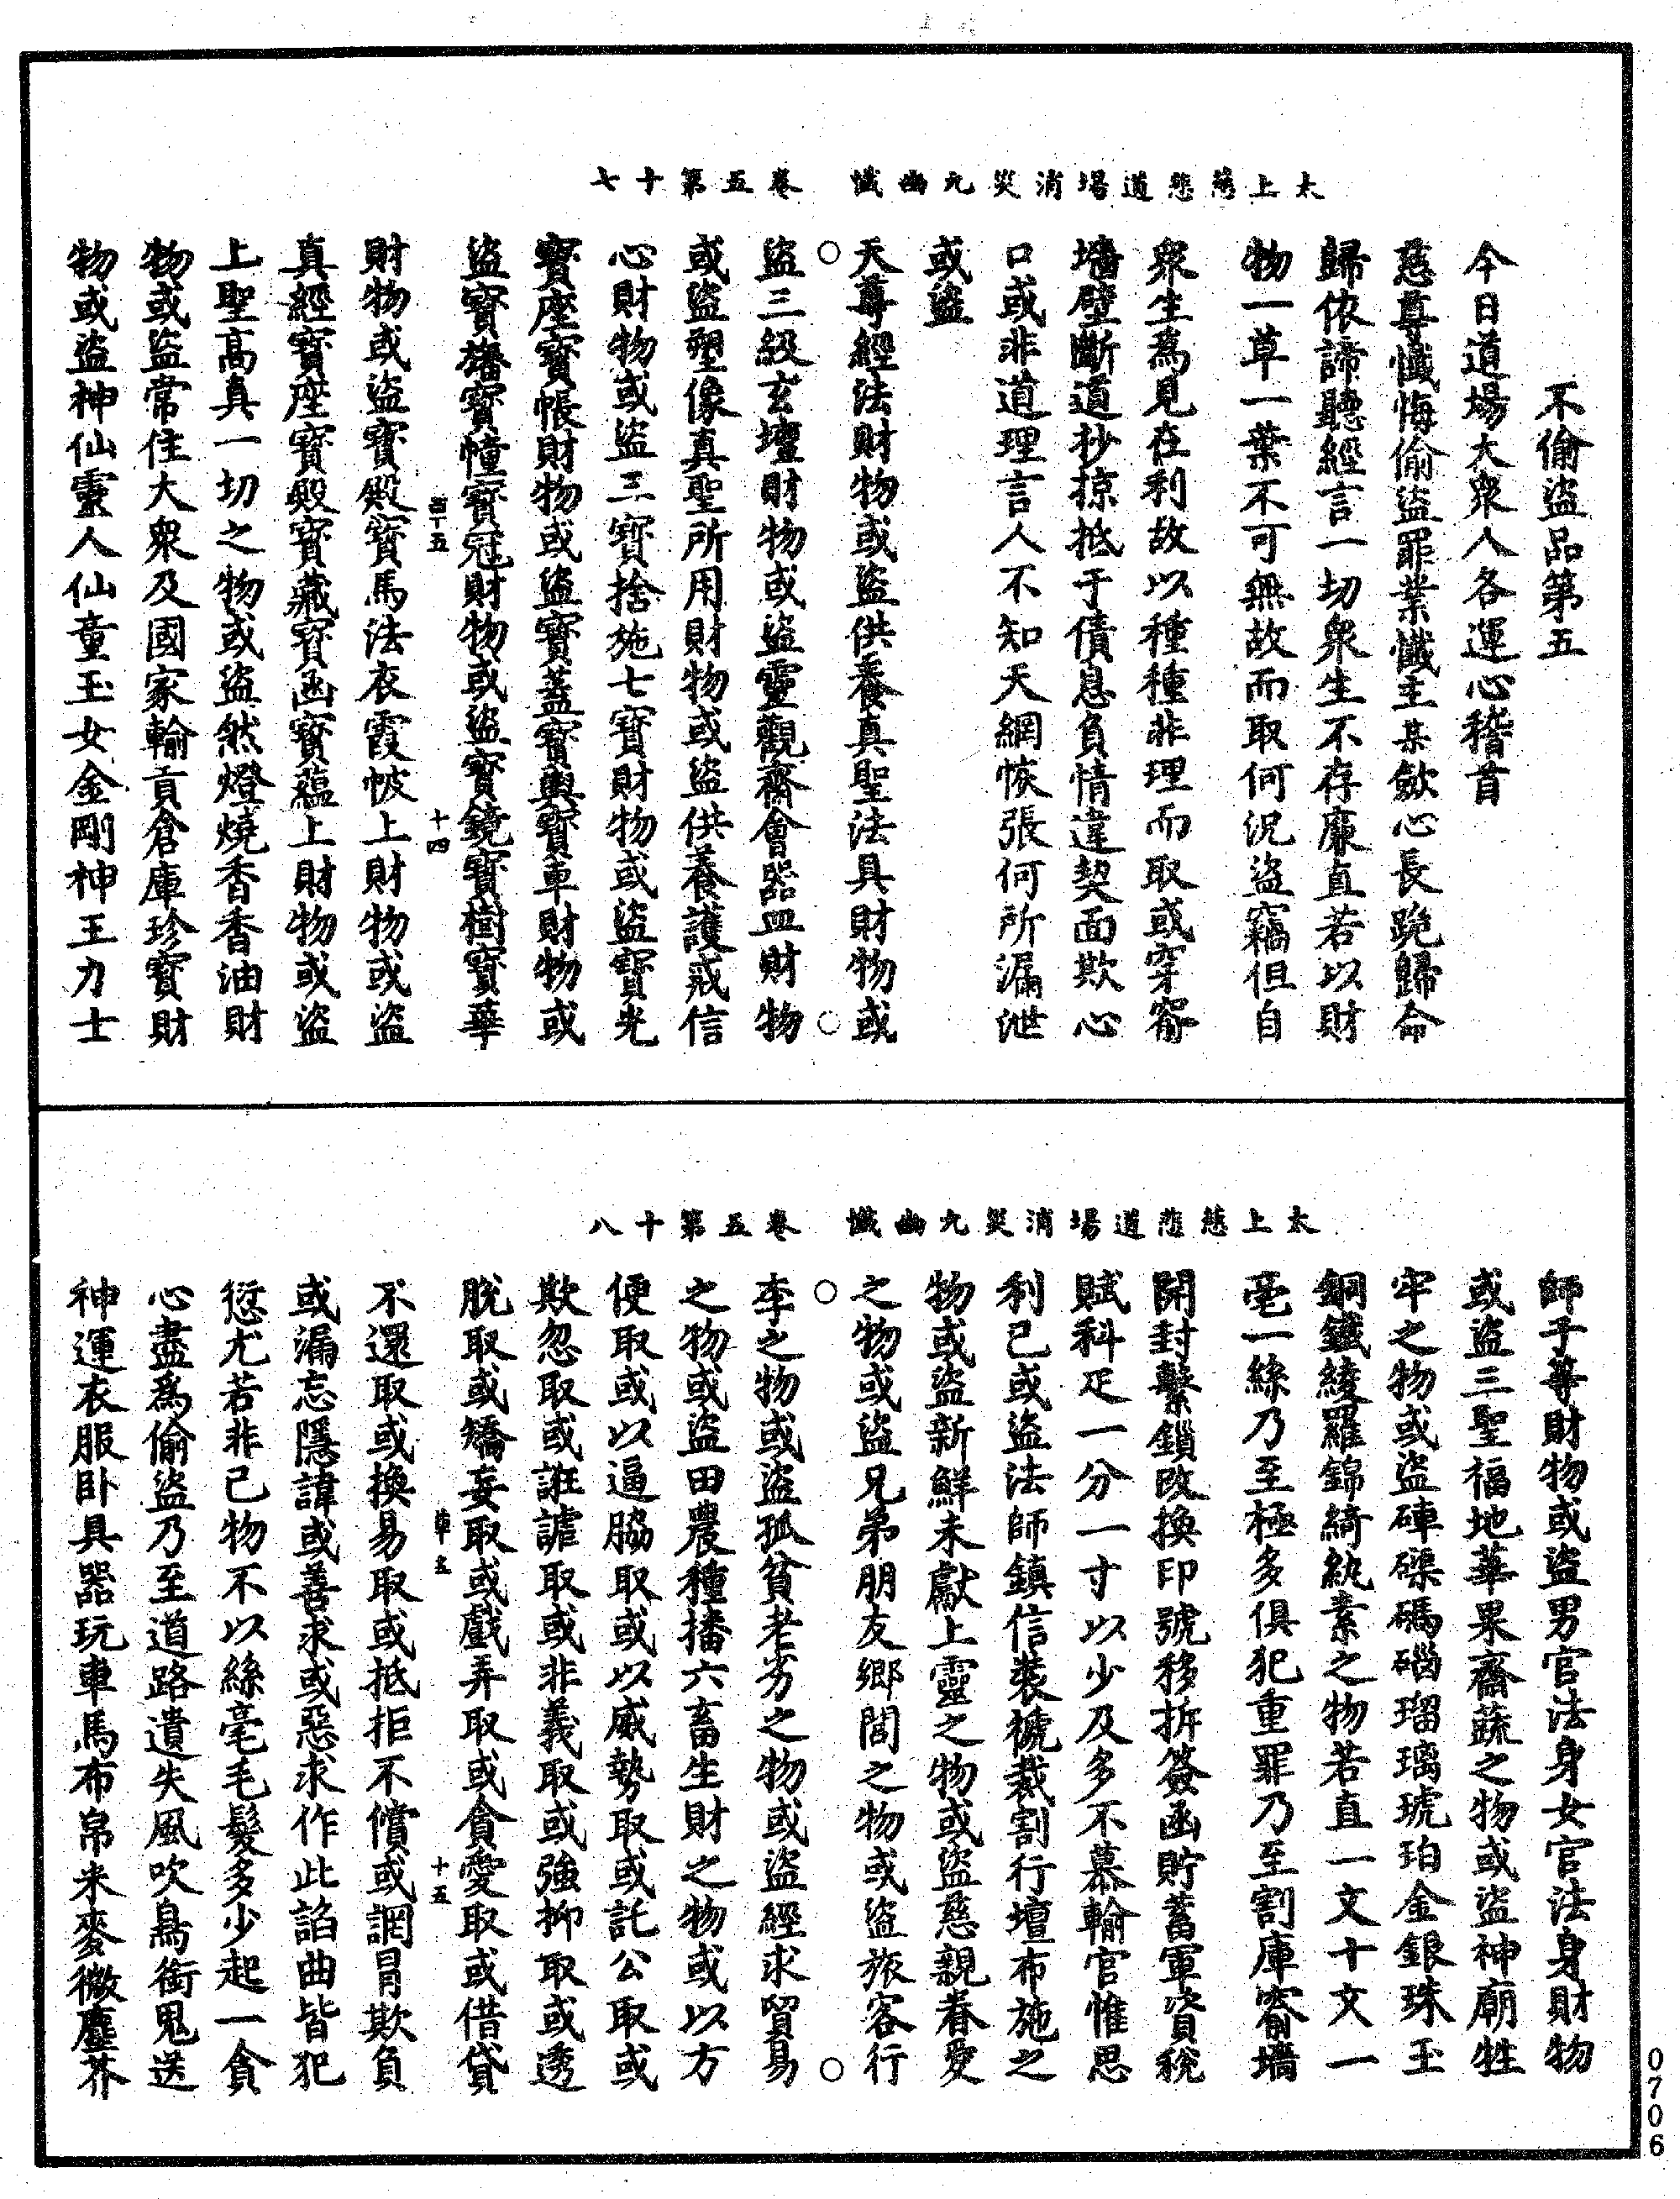 太上慈悲道場消災九幽懺　卷五第十七
不偷盜品第五
今日道場大衆人各運心稽首
慈尊懺悔偷盜罪業懺主某歛心長跪歸命
歸依諦聽經言一切衆生不存廉直若以財
物一草一葉不可無故而取何況盜竊但自
衆生爲見在利故以種種非理而取或穿窬
墻壁斷道抄掠抵于債息負情違契面欺心
口或非道理言人不知天網恢張何所漏泄
或盜
天尊經法財物或盜供養真聖法具財物或
盜三級玄壇財物或盜靈觀齋會器皿財物
或盜塑像真聖所用財物或盜供養護戒信
心財物或盜三寶捨施七寶財物或盜寶光
寶座寶帳財物或盜寶蓋寶輿寶車財物或
盜寶旛寶幢寶冠財物或盜寶鏡寶樹寶華
十四
財物或盜寶殿寶馬法衣霞帔上財物或盜
真經寶座寶殿寶藏寶函寶蘊上財物或盜
上聖高真一切之物或盜然燈燒香香油財
物或盜常住大衆及國家輸貢倉庫珍寶財
物或盜神仙靈人仙童玉女金剛神王力士
太上慈悲道場消災九幽懺　卷五第十八
師子等財物或盜男官法身女官法身財物
或盜三聖福地華果齋蔬之物或盜神廟牲
牢之物或盜硨磲碼碯瑠璃琥珀金銀珠玉
銅鐵綾羅錦綺紈素之物若直一文十文一
毫一絲乃至極多俱犯重罪乃至割庫窬墻
開封繫鎖改換印號移拆簽函貯蓄軍資稅
賦科疋一分一寸以少及多不慕輸官惟思
利己或盜法師鎮信裝櫬裁割行壇布施之
物或盜新鮮未獻上靈之物或盜慈親眷愛
之物或盜兄弟朋友鄉閭之物或盜旅客行
李之物或盜孤貧老劣之物或盜經求貿易
之物或盜田農種播六畜生財之物或以方
便取或以逼脇取或以威勢取或託公取或
欺忽取或誑謔取或非義取或強抑取或透
脫取或矯妄取或戲弄取或貪愛取或借貸
十五
不還取或換易取或抵拒不償或調冐欺負
或漏忘隱諱或善求或惡求作此諂曲皆犯
愆尤若非己物不以絲毫毛髮多少起一貪
心盡爲偷盜乃至道路遺失風吹鳥銜鬼送
神運衣服卧具器玩車馬布帛米麥微塵芥
0706